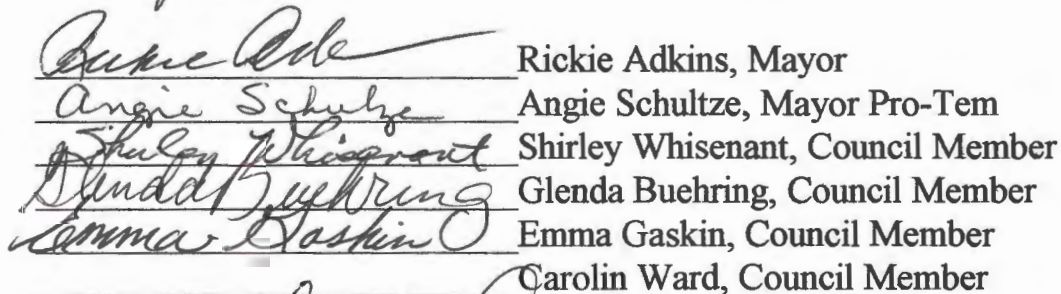 Rickie Adkins, Mayor
Angie Schultze Angie Schultze, Mayor Pro-Tem
Shirley Whisenant Shirley Whisenant, Council Member
Glenda Buehring Glenda Buehring, Council Member
Emma Gaskin Emma Gaskin, Council Member
Carolin Ward, Council Member